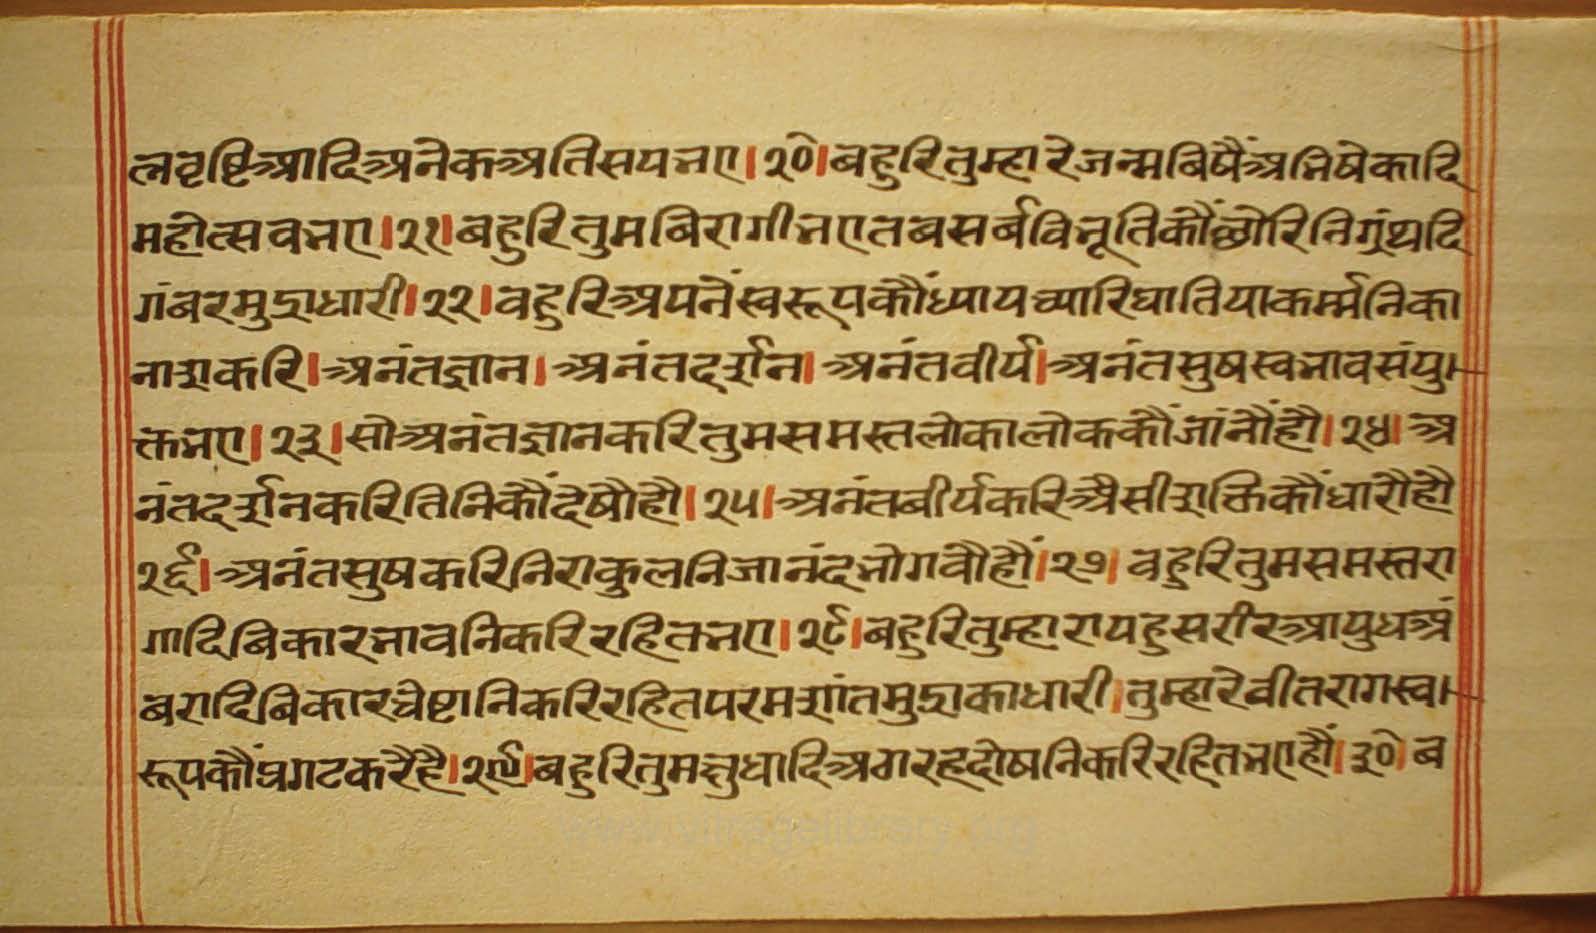 त्नवृष्टिआदिअनेकअतिसयभए।२०।बहुरितुम्हारेजन्मबिषैंअभिषेकादि
महोत्सवभए।२१।बहुरितुमबिरागीभएतबसर्बविभूतिकौंछोरिनिग्रंथदि
गंबरमुद्राधारी।२२।वहुरिअपनेंस्वरूपकौंध्यायच्यारिघातियाकर्म्मनिका
नाशकरि।अनंतज्ञान।अनंतदर्शन।अनंतवीर्य।अनंतसुषस्वभावसंयु
क्तभए।२३।सोअनंतज्ञानकरितुमसमस्तलोकालोककौंजांनौंहौ।२४।अ
नंतदर्शनकरितिनिकौंदेषौहौ।२५।अनंतबीर्यकरिअैसीशक्तिकौंधारौहौ
२६।अनंतसुषकरिनिराकुलनिजानंदभोगवौहौं।२७।वहुरितुमसमस्तरा
गादिबिकारभावनिकरिरहितभए।२८।बहुरितुम्हारायहुसरीरआयुधअं
बरादिबिकारचेष्टानिकरिरहितपरमशांतमुद्राकाधारी।तुम्हारेवीतरागस्व
रूपकौंप्रगटकरैहै।२९।बहुरितुमक्षुधादिअठारहदोषनिकरिरहितभएहौं।३०।ब
www.vitragelibrary.org